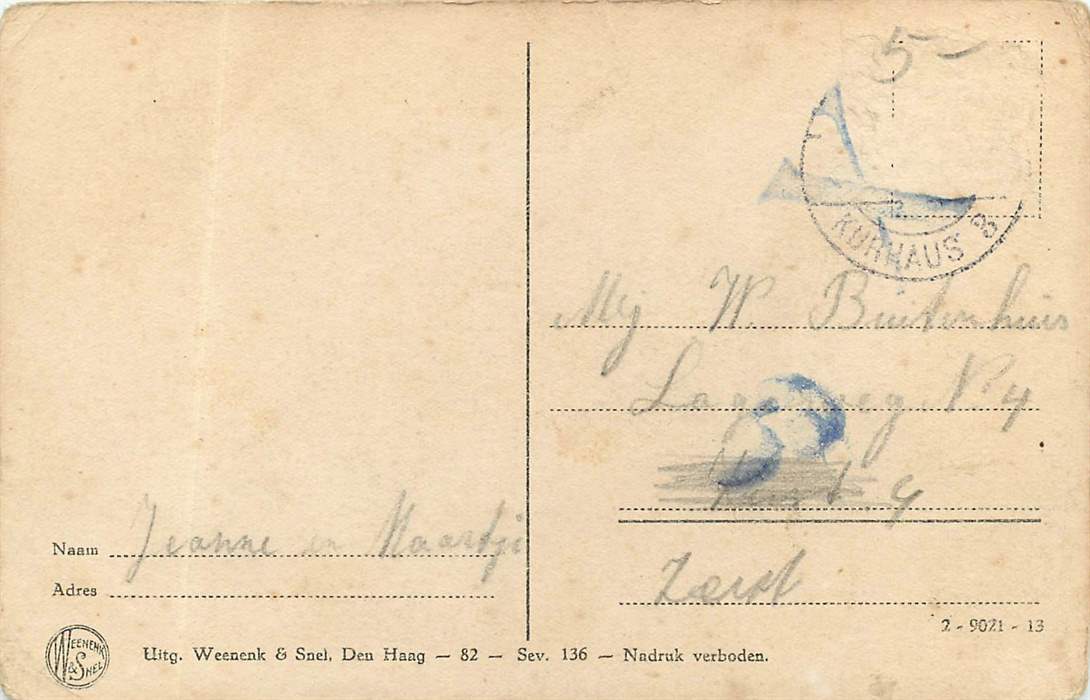 5-
KURHAUS 3
Mej W. Buitenhuis
weg No. 4
Zeist
Naam Jeanne en Maartje
Adres
2 - 9021 - 13
WEENENK & SNEL
Uitg. Weenenk & Snel, Den Haag — 82 — Sev. 136 — Nadruk verboden.